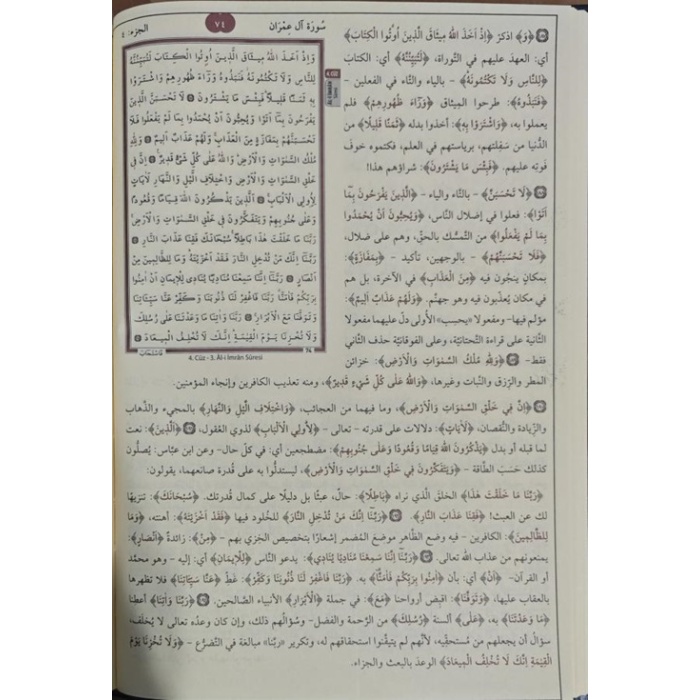 الجزء: ٤
٧٤
سُورَة آل عِمْرَان
وَاِذْ اَخَذَ اللّٰهُ مٖيثَاقَ الَّذٖينَ اُوتُوا الْكِتَابَ لَتُبَيِّنُنَّهُ
لِلنَّاسِ وَلَا تَكْتُمُونَهُ فَنَبَذُوهُ وَرَٓاءَ ظُهُورِهِمْ وَاشْتَرَوْا
بِهٖ ثَمَنًا قَلٖيلًا فَبِئْسَ مَا يَشْتَرُونَ لَا تَحْسَبَنَّ الَّذٖينَ
يَفْرَحُونَ بِمَٓا اَتَوْا وَيُحِبُّونَ اَنْ يُحْمَدُوا بِمَا لَمْ يَفْعَلُوا فَلَا
تَحْسَبَنَّهُمْ بِمَفَازَةٍ مِنَ الْعَذَابِ وَلَهُمْ عَذَابٌ اَلٖيمٌ وَلِلّٰهِ
مُلْكُ السَّمٰوَاتِ وَالْاَرْضِ وَاللّٰهُ عَلٰى كُلِّ شَيْءٍ قَدٖيرٌ اِنَّ فٖي
خَلْقِ السَّمٰوَاتِ وَالْاَرْضِ وَاخْتِلَافِ الَّيْلِ وَالنَّهَارِ لَاٰيَاتٍ
لِاُولِي الْاَلْبَابِ اَلَّذٖينَ يَذْكُرُونَ اللّٰهَ قِيَامًا وَقُعُودًا
وَعَلٰى جُنُوبِهِمْ وَيَتَفَكَّرُونَ فٖي خَلْقِ السَّمٰوَاتِ وَالْاَرْضِ
رَبَّنَا مَا خَلَقْتَ هٰذَا بَاطِلًا سُبْحَانَكَ فَقِنَا عَذَابَ النَّارِ
رَبَّنَٓا اِنَّكَ مَنْ تُدْخِلِ النَّارَ فَقَدْ اَخْزَيْتَهُ وَمَا لِلظَّالِمٖينَ مِنْ
اَنْصَارٍ رَبَّنَٓا اِنَّنَا سَمِعْنَا مُنَادِيًا يُنَادٖي لِلْاٖيمَانِ اَنْ اٰمِنُوا
بِرَبِّكُمْ فَاٰمَنَّا رَبَّنَا فَاغْفِرْ لَنَا ذُنُوبَنَا وَكَفِّرْ عَنَّا سَيِّـَٔاتِنَا
وَتَوَفَّنَا مَعَ الْاَبْرَارِ رَبَّنَا وَاٰتِنَا مَا وَعَدْتَنَا عَلٰى رُسُلِكَ
وَلَا تُخْزِنَا يَوْمَ الْقِيٰمَةِ اِنَّكَ لَا تُخْلِفُ الْمٖيعَادَ
4. Cüz - 3. Âl-i İmrân Sûresi
﴿وَ﴾ اذكرْ ﴿إِذْ أَخَذَ اللهُ مِيثَاقَ الَّذِينَ أُوتُوا الْكِتَابَ﴾
أي: العهدَ عليهم في التَّوراة، ﴿لَتُبَيِّنُنَّهُ﴾ أي: الكتابَ
﴿لِلنَّاسِ وَلَا تَكْتُمُونَهُ﴾ - بالياء والتَّاء في الفعلين -
﴿فَنَبَذُوهُ﴾: طرحوا الميثاق ﴿وَرَاءَ ظُهُورِهِمْ﴾ فلم
يعملوا به، ﴿وَاشْتَرَوْا بِهِ﴾: أخذوا بدله ﴿ثَمَنًا قَلِيلًا﴾ من
الدُّنيا من سَفِلتهم، برياستهم في العلم، فكتموه خوفَ
فَوتِه عليهم. ﴿فَبِئْسَ مَا يَشْتَرُونَ﴾: شراؤهم هذا!
﴿لَا تَحْسَبَنَّ﴾ - بالتَّاء والياء - ﴿الَّذِينَ يَفْرَحُونَ بِمَا
أَتَوْا﴾: فعلوا في إضلال النَّاس، ﴿وَيُحِبُّونَ أَنْ يُحْمَدُوا
بِمَا لَمْ يَفْعَلُوا﴾ من التَّمسك بالحقِّ، وهم على ضلال،
﴿فَلَا تَحْسَبَنَّهُمْ﴾ - بالوجهين، تأكيد - ﴿بِمَفَازَةٍ﴾:
بمكان ينجُون فيه ﴿مِنَ الْعَذَابِ﴾ في الآخرة، بل هم
في مكان يُعذَّبون فيه وهو جهنَّم. ﴿وَلَهُمْ عَذَابٌ أَلِيمٌ﴾:
مؤلم فيها- ومفعولا «يحسب» الأولى دلَّ عليهما مفعولا
الثَّانية على قراءة التَّحتانيَّة، وعلى الفوقانيَّة حذف الثَّاني
فقط- ﴿وَلِلَّهِ مُلْكُ السَّمَوَاتِ وَالْأَرْضِ﴾: خزائن
المطر والرِّزق والنَّبات وغيرها، ﴿وَاللهُ عَلَى كُلِّ شَيْءٍ قَدِيرٌ﴾، ومنه تعذيب الكافرين وإنجاء المؤمنين.
﴿إِنَّ فِي خَلْقِ السَّمَوَاتِ وَالْأَرْضِ﴾، وما فيهما من العجائب، ﴿وَاخْتِلَافِ الَّيْلِ وَالنَّهَارِ﴾ بالمجيء والذَّهاب
والزِّيادة والنُّقصان، ﴿لَآيَاتٍ﴾: دلالات على قدرته - تعالى - ﴿لِأُولِي الْأَلْبَابِ﴾ لذوي العُقول، ﴿الَّذِينَ﴾: نعت
لما قبله أو بدل ﴿يَذْكُرُونَ اللهَ قِيَامًا وَقُعُودًا وَعَلَى جُنُوبِهِمْ﴾: مضطجعين أي: في كلِّ حال- وعن ابن عبَّاس: يُصلُّون
كذلك حَسَبَ الطَّاقة - ﴿وَيَتَفَكَّرُونَ فِي خَلْقِ السَّمَوَاتِ وَالْأَرْضِ﴾، ليستدلُّوا به على قُدرة صانعهما، يقولون:
﴿رَبَّنَا مَا خَلَقْتَ هَذَا﴾ الخلقَ الَّذي نراه ﴿بَاطِلًا﴾: حالٌ، عبثًا بل دليلًا على كمال قُدرتك. ﴿سُبْحَانَكَ﴾: تنزيهًا
لك عن العبث! ﴿فَقِنَا عَذَابَ النَّارِ﴾. ﴿رَبَّنَا إِنَّكَ مَنْ تُدْخِلِ النَّارَ﴾ للخُلود فيها ﴿فَقَدْ أَخْزَيْتَهُ﴾: أهنته، ﴿وَمَا
لِلظَّالِمِينَ﴾: الكافرين - فيه وضع الظَّاهر موضعَ المُضمر إشعارًا بتخصيص الخِزي بهم - ﴿مِنْ﴾: زائدةٌ ﴿أَنْصَارٍ﴾:
يمنعونهم من عذاب الله تعالى. ﴿رَبَّنَا إِنَّنَا سَمِعْنَا مُنَادِيًا يُنَادِي﴾: يدعو النَّاس ﴿لِلْإِيمَانِ﴾ أي: إليه - وهو محمَّد
أو القرآن- ﴿أَنْ﴾ أي: بأن ﴿آمِنُوا بِرَبِّكُمْ فَآمَنَّا﴾ به. ﴿رَبَّنَا فَاغْفِرْ لَنَا ذُنُوبَنَا وَكَفِّرْ﴾: غَطِّ ﴿عَنَّا سَيِّئَاتِنَا﴾ فلا تظهرها
بالعقاب عليها، ﴿وَتَوَفَّنَا﴾: اقبض أرواحنا ﴿مَعَ﴾: في جملة ﴿الْأَبْرَارِ﴾ الأنبياء الصَّالحين. ﴿رَبَّنَا وَآتِنَا﴾ أعطنا
﴿مَا وَعَدْتَنَا﴾ به، ﴿عَلَى﴾ ألسنة ﴿رُسُلِكَ﴾ من الرَّحمة والفضل- وسؤالُهم ذلك، وإن كان وعدُه تعالى لا يُخلَف،
سؤالُ أن يجعلهم من مُستحقِّيه، لأنَّهم لم يتيقَّنوا استحقاقهم له، وتكرير «ربَّنا» مبالغة في التَّضرُّع - ﴿وَلَا تُخْزِنَا يَوْمَ
الْقِيَمَةِ إِنَّكَ لَا تُخْلِفُ الْمِيعَادَ﴾ الوعدَ بالبعث والجزاء.